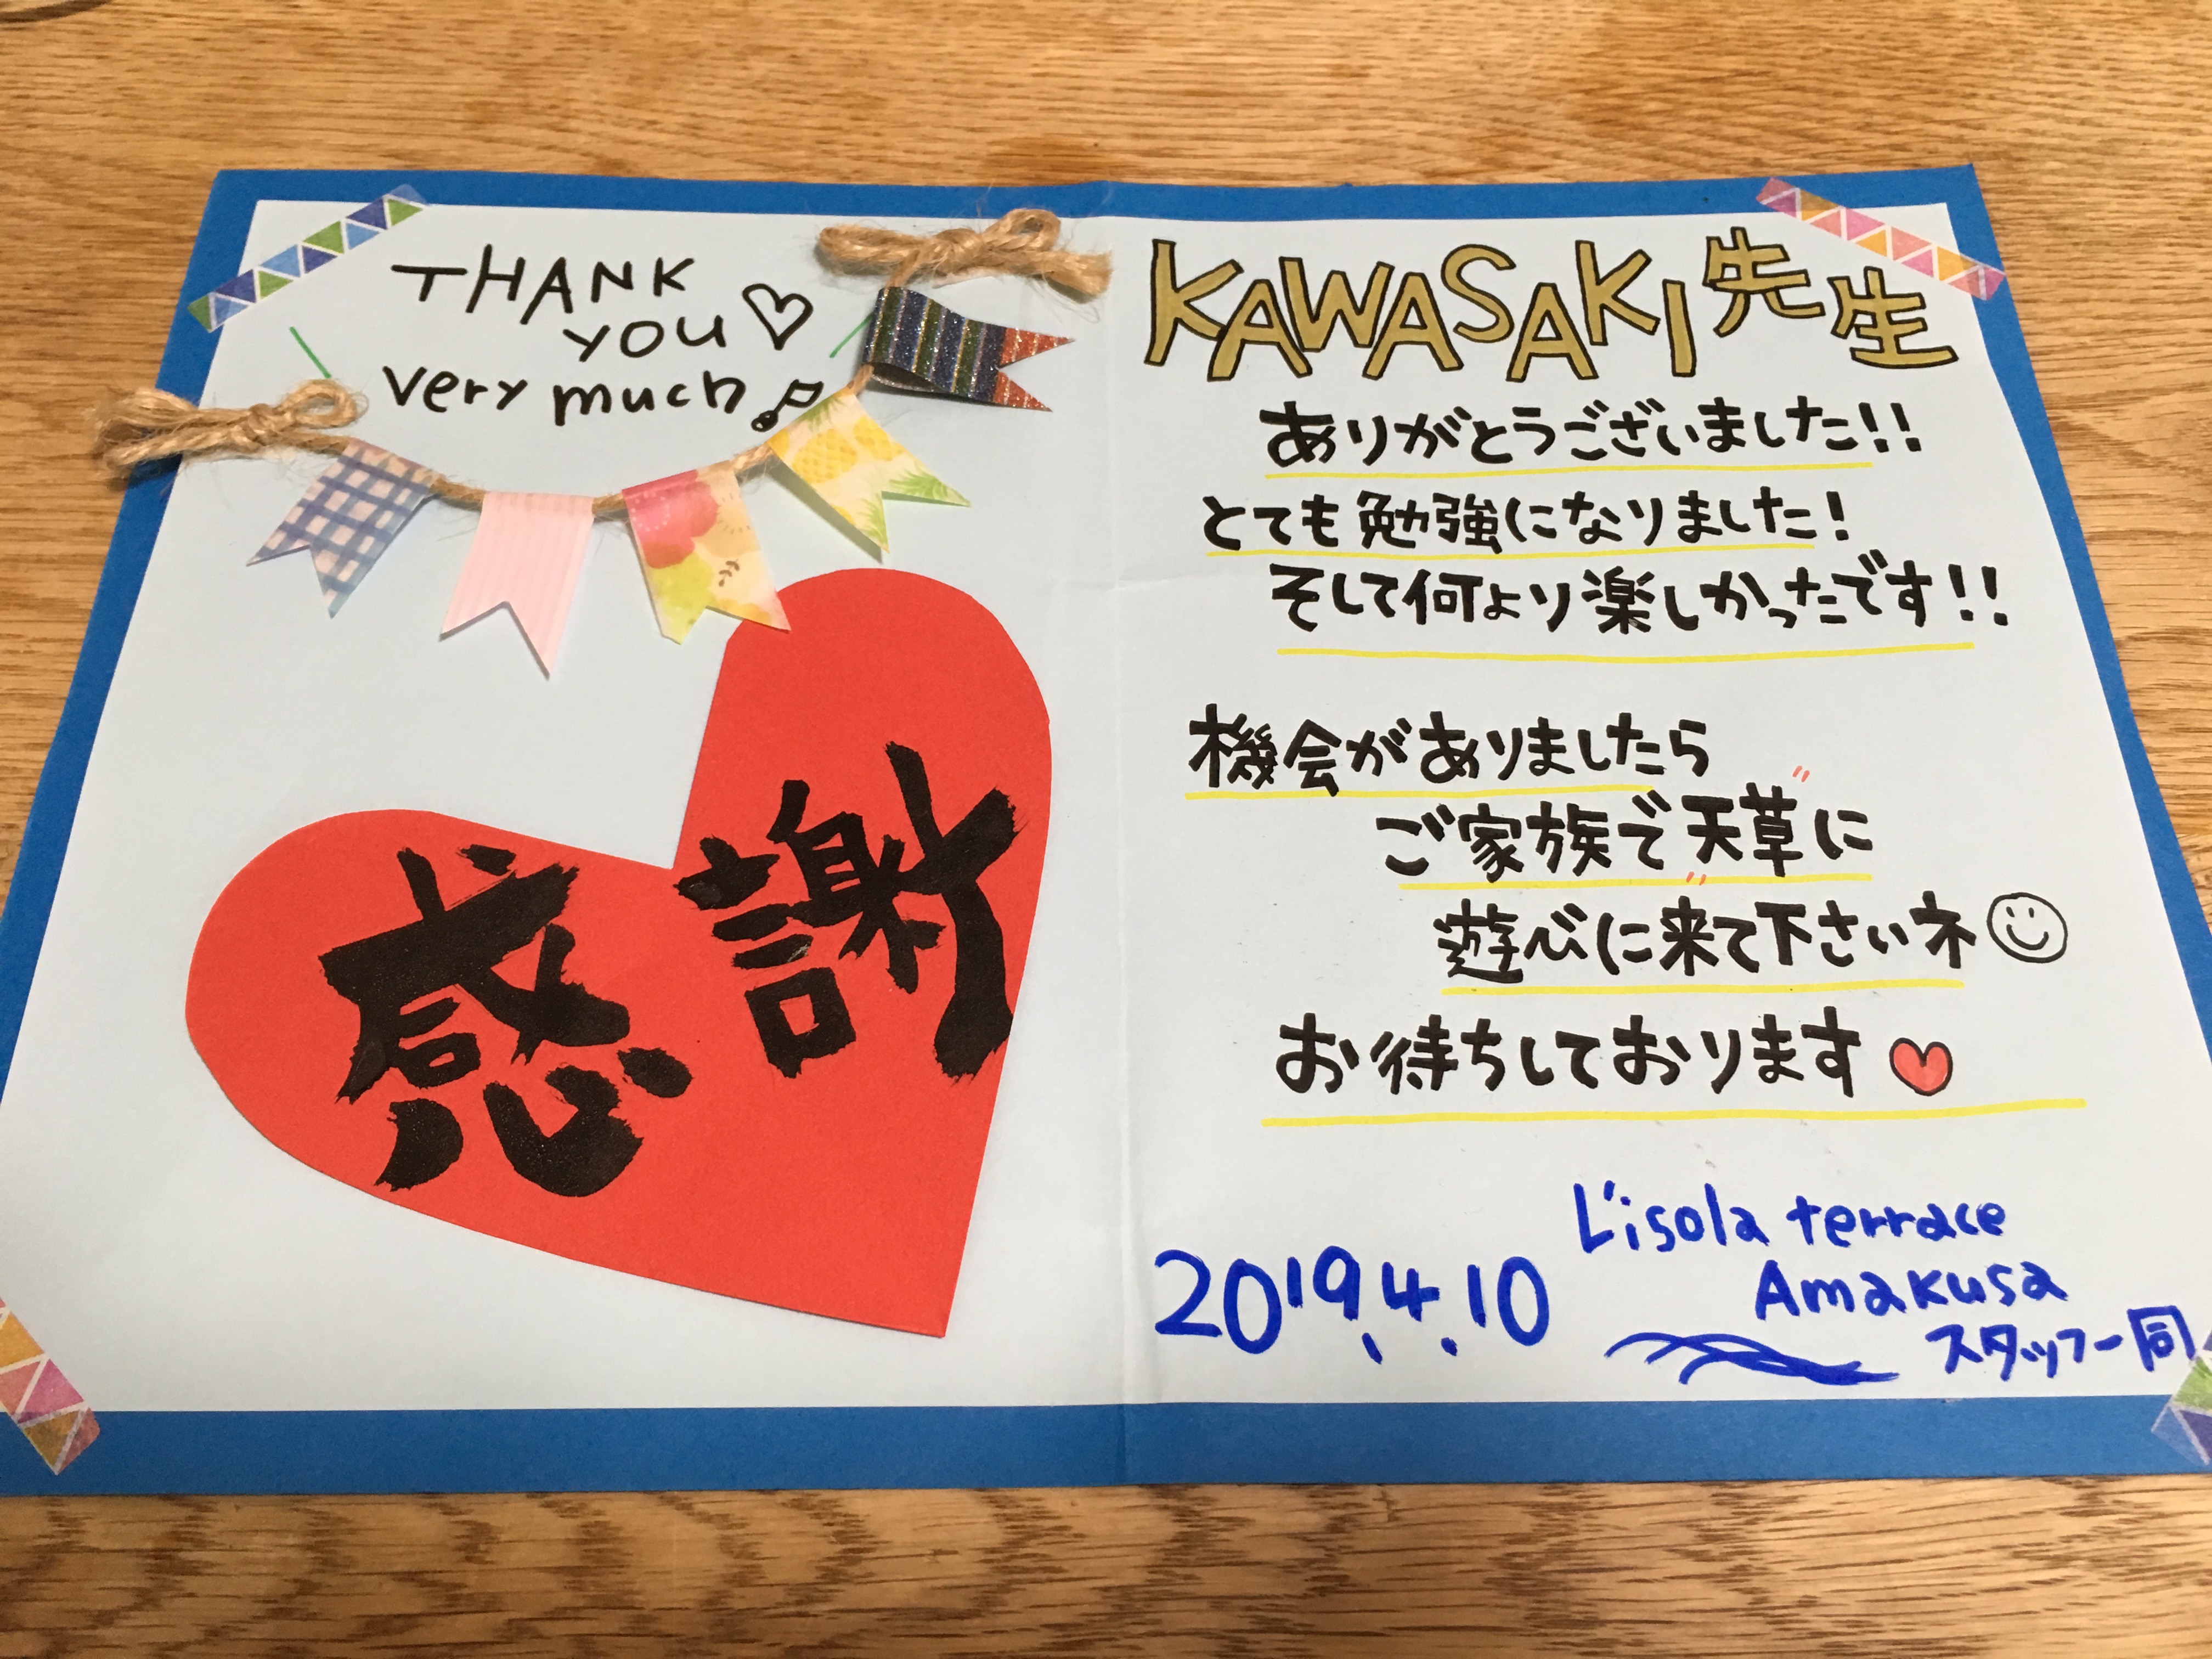 THANK
YOU♡
very much♪
感謝
KAWASAKI先生
ありがとうございました!!
とても勉強になりました!
そして何より楽しかったです!!
機会がありましたら
ご家族で天草に
遊びに来て下さいネ☺
お待ちしております♥
2019.4.10
L'isola terrace
Amakusa
スタッフ一同